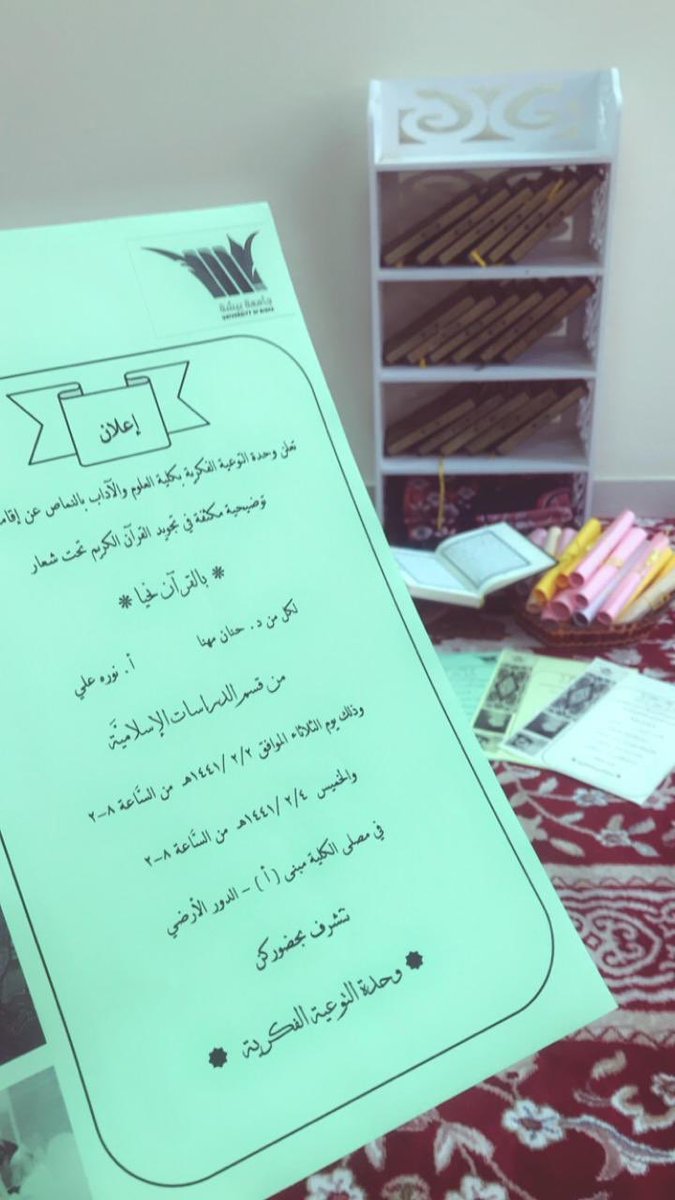 جامعة بيشة
UNIVERSITY OF BISHA
إعلان
تعلن وحدة التوعية الفكرية بكلية العلوم والآداب بالنماص عن
توضيحية مكثفة في تجويد القرآن الكريم تحت شعار
* بالقرآن نحيا *
لكل من د. حنان مهنا أ. نوره علي
من قسم الدراسات الإسلاميَّة
وذلك يوم الثلاثاء الموافق ١٤٤١/٢/٢هـ من السَّاعة ٨-٢
والخميس ١٤٤١/٢/٤هـ من السَّاعة ٨-٢
في مصلى الكلية مبنى (أ) - الدور الأرضي
نتشرف بحضوركن
وحدة التوعية الفكرية